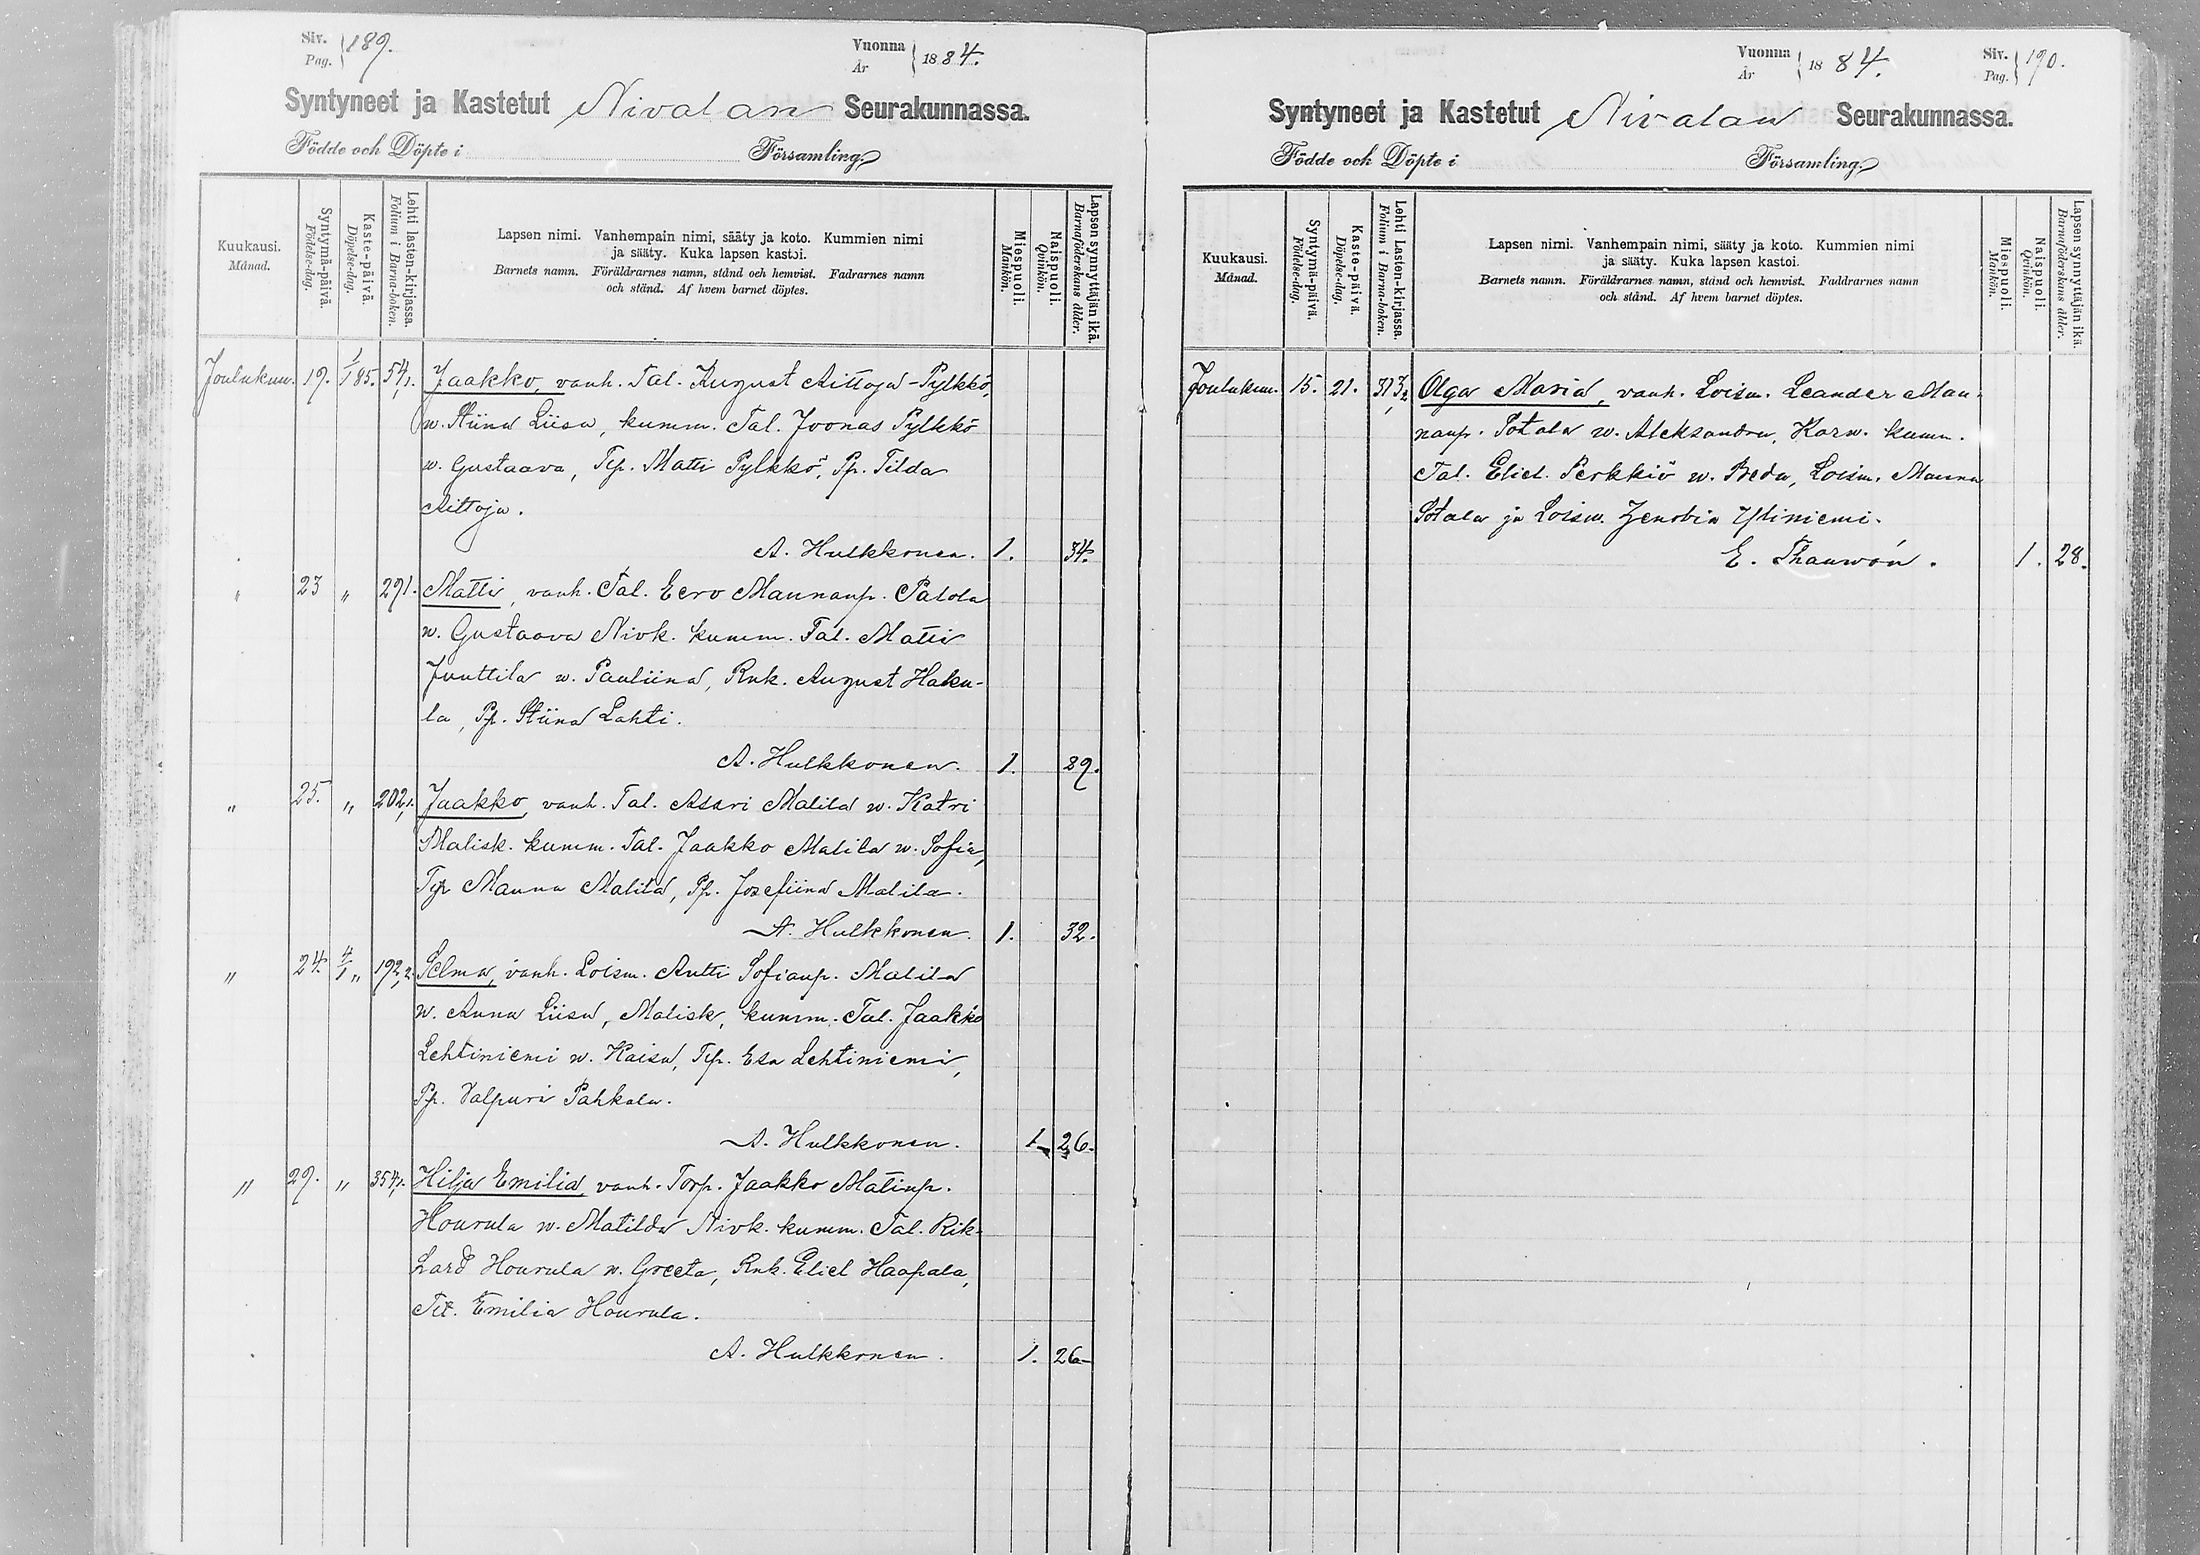 Siv. Pag. 189.
Vuonna År 1884.
Syntyneet ja Kastetut Nivalan Seurakunnassa.
Födde och Döpte i Församling.
Kuukausi. Månad.
Syntymä-päivä. Födelse-dag.
Kaste-päivä. Döpelse-dag.
Lehti lasten-kirjassa. Folium i Barna-boken.
Lapsen nimi. Vanhempain nimi, sääty ja koto. Kummien nimi
ja sääty. Kuka lapsen kastoi.
Barnets namn. Föräldrarnes namn, stånd och hemvist. Fadrarnes namn
och stånd. Af hvem barnet döptes.
Miespuoli. Mankön.
Naispuoli. Qvinkön.
Lapsen synnyttäjän ikä. Barnaföderskans ålder.
Joulukuu. 19. 1/1 85. 54,1. Jaakko, vanh. Tal. August Aittoja-Pylkkö,
w. Stiina Liisa, kumm. Tal. Joonas Pylkkö
w. Gustaava, Tp. Matti Pylkkö, Pp. Tilda
Aittoja.
A. Hulkkonen. 1. 34.
" 23 " 291. Matti, vanh. Tal. Eero Maunanp. Patola
w. Gustaava Nivk. kumm. Tal. Matti
Junttila w. Pauliina, Rnk. August Haku-
la, Pp. Stiina Lahti.
A. Hulkkonen. 1. 39.
" 25. " 202,1. Jaakko, vanh. Tal. Asari Malila w. Katri
Malisk. kumm. Tal. Jaakko Malila w. Sofia,
Tp Mauna Malila, Pp. Josefiina Malila.
A. Hulkkonen. 1. 32.
" 24. 4/1 " 192,2 Selma, vanh. Loism. Antti Sofianp. Malila
w. Anna Liisa, Malisk, kumm. Tal. Jaakko
Lehtiniemi w. Kaisa, Tp. Esa Lehtiniemi,
Pp. Valpuri Pahkala.
A. Hulkkonen. 1 26.
" 29. " 354,1. Hilja Emilia, vanh. Torp. Jaakko Matinp.
Hourula w. Matilda Nivk. kumm. Tal. Rik-
hard Hourula w. Greeta, Rnk. Eliel Haapala,
Tt. Emilia Hourula.
A. Hulkkonen. 1. 26
Vuonna År 1884.
Siv. Pag. 190.
Syntyneet ja Kastetut Nivalan Seurakunnassa.
Födde och Döpte i Församling.
Kuukausi. Månad.
Syntymä-päivä. Födelse-dag.
Kaste-päivä. Döpelse-dag.
Lehti Lasten-kirjassa. Folium i Barna-boken.
Lapsen nimi. Vanhempain nimi, sääty ja koto. Kummien nimi
ja sääty. Kuka lapsen kastoi.
Barnets namn. Föräldrarnes namn, stånd och hemvist. Faddrarnes namn
och stånd. Af hvem barnet döptes.
Miespuoli. Mankön.
Naispuoli. Qvinkön.
Lapsen synnyttäjän ikä. Barnaföderskans ålder.
Joulukuu. 15. 21. 313,2 Olga Maria, vanh. Loism. Leander Mau-
nanp. Sotala w. Aleksandra, Karv. kumm.
Tal. Eliel. Perkkiö w. Breda, Loism. Mauna
Sotala ja Loisw. Zenobia Yliniemi.
E. Thauwón. 1. 28.